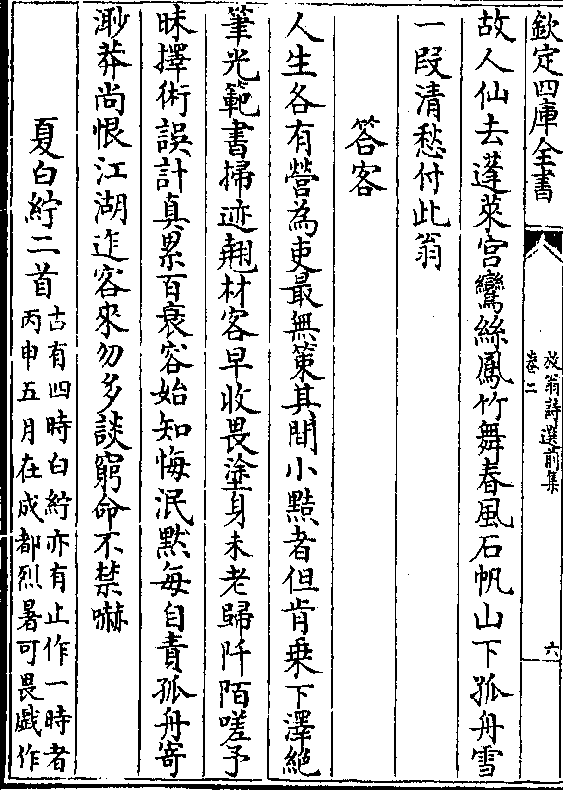 欽定四庫全書
放翁詩選前集
卷二
六
故人仙去蓬萊宮鸞絲鳳竹舞春風石帆山下孤舟雪
一段清愁付此翁
答客
人生各有營為吏最無策其間小黠者但肯乗下澤絶
筆光範書掃迹翹材客早收畏塗身未老歸阡陌嗟予
昧擇術誤計真累百衰容始知悔泯黙每自責孤舟寄
渺莽尚恨江湖迮客來勿多談窮命不禁嚇
夏白紵二首
古有四時白紵亦有止作一時者
丙申五月在成都烈暑可畏戯作